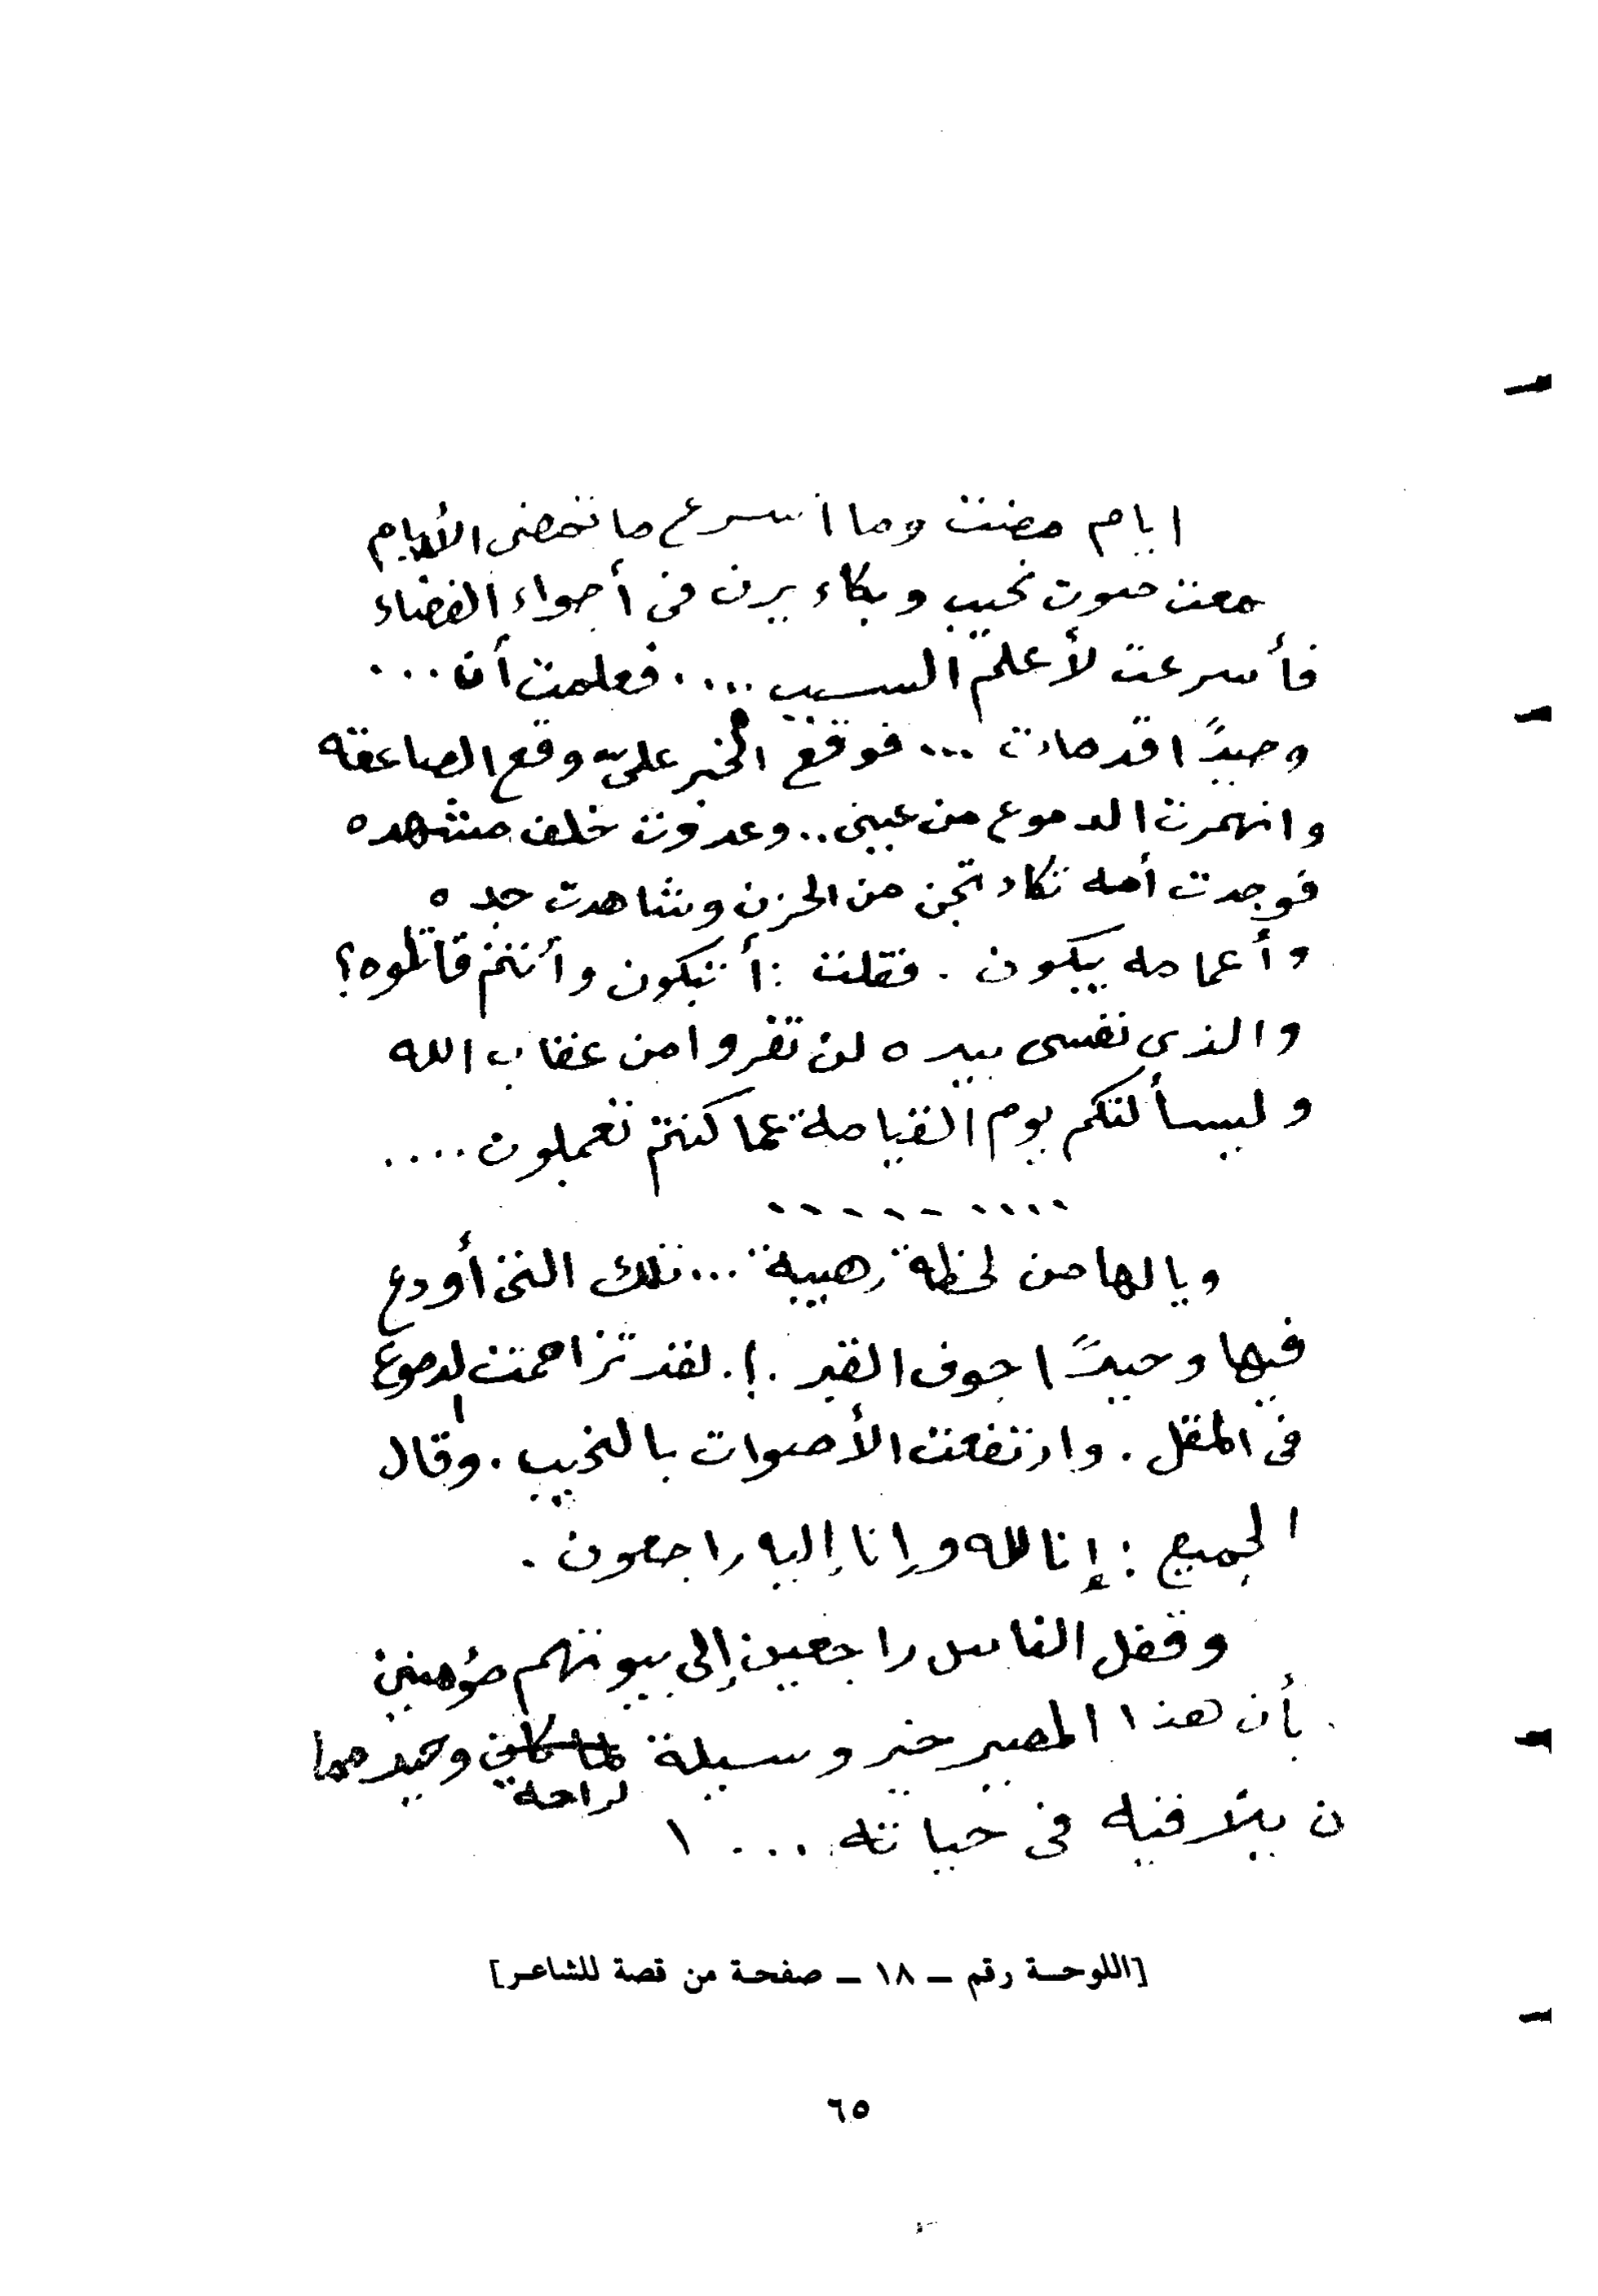 ايام مضت وما أسرع ما تمضى الأيام
سمعت صوت نحيب وبكاء يرن فى أجواء الفضاء
فأسرعت لأعلم السبب .... فعلمت أن ...
وحيداً قد مات ... فوقع الخبر علىّ وقع الصاعقة
وانهمرت الدموع من عينى .. وعدوت خلف مشهده
فوجدت أمه تكاد تجن من الحزن وشاهدت جده
وأعمامه يبكون . فقلت : أتبكون وأنتم قاتلوه؟
والذى نفسى بيده لن تفروا من عقاب الله
وليسألنكم يوم القيامة عما كنتم تعملون ....
.........
ويالها من لحظة رهيبة ... تلك التى أودع
فيها وحيداً جوف القبر .!. لقد تزاحمت الدموع
فى المقل . وارتفعت الأصوات بالنحيب . وقال
الجميع : إنا لله وإنا إليه راجعون .
وقفل الناس راجعين إلى بيوتهم مؤمنين
بأن هذا المصير خير وسيلة لراحة وحيد مما
ن يلاقيه فى حياته ... ١
[اللوحة رقم - ١٨ - صفحة من قصة للشاعر]
٦٥